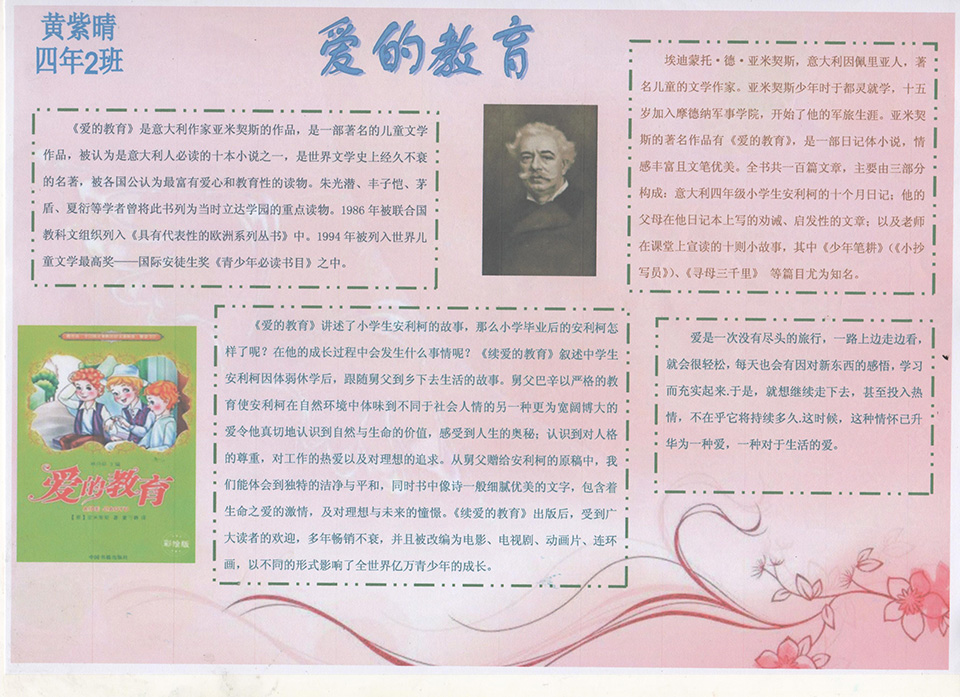 黄紫晴
四年2班
爱的教育
《爱的教育》是意大利作家亚米契斯的作品，是一部著名的儿童文学
作品，被认为是意大利人必读的十本小说之一，是世界文学史上经久不衰
的名著，被各国公认为最富有爱心和教育性的读物。朱光潜、丰子恺、茅
盾、夏衍等学者曾将此书列为当时立达学园的重点读物。1986 年被联合国
教科文组织列入《具有代表性的欧洲系列丛书》中。1994 年被列入世界儿
童文学最高奖——国际安徒生奖《青少年必读书目》之中。
埃迪蒙托·德·亚米契斯，意大利因佩里亚人，著
名儿童的文学作家。亚米契斯少年时于都灵就学，十五
岁加入摩德纳军事学院，开始了他的军旅生涯。亚米契
斯的著名作品有《爱的教育》，是一部日记体小说，情
感丰富且文笔优美。全书共一百篇文章，主要由三部分
构成：意大利四年级小学生安利柯的十个月日记；他的
父母在他日记本上写的劝诫、启发性的文章；以及老师
在课堂上宣读的十则小故事，其中《少年笔耕》（《小抄
写员》）、《寻母三千里》 等篇目尤为知名。
《爱的教育》讲述了小学生安利柯的故事，那么小学毕业后的安利柯怎
样了呢？在他的成长过程中会发生什么事情呢？《续爱的教育》叙述中学生
安利柯因体弱休学后，跟随舅父到乡下去生活的故事。舅父巴辛以严格的教
育使安利柯在自然环境中体味到不同于社会人情的另一种更为宽阔博大的
爱令他真切地认识到自然与生命的价值，感受到人生的奥秘；认识到对人格
的尊重，对工作的热爱以及对理想的追求。从舅父赠给安利柯的原稿中，我
们能体会到独特的洁净与平和，同时书中像诗一般细腻优美的文字，包含着
生命之爱的激情，及对理想与未来的憧憬。《续爱的教育》出版后，受到广
大读者的欢迎，多年畅销不衰，并且被改编为电影、电视剧、动画片、连环
画，以不同的形式影响了全世界亿万青少年的成长。
爱是一次没有尽头的旅行，一路上边走边看，
就会很轻松，每天也会有因对新东西的感悟，学习
而充实起来.于是，就想继续走下去，甚至投入热
情，不在乎它将持续多久.这时候，这种情怀已升
华为一种爱，一种对于生活的爱。
爱的教育
彩绘版